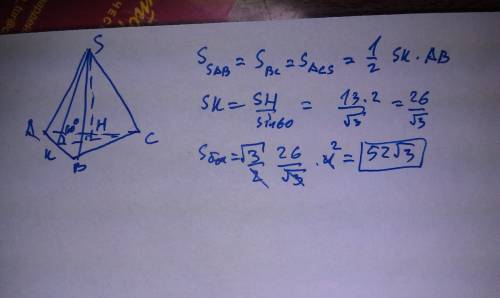 S
A
60°
H
C
K
B
S_SAB = S_BC = S_ACS = 1/2 SK · AB
SK = SH/sin60 = 13·2/√3 = 26/√3
Sбок = √3/2 26/√3 · 4² = 52√3